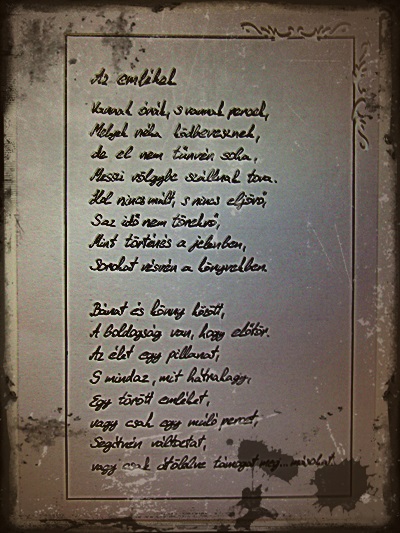 Az emlékek
Vannak órák, s vannak percek,
Melyek néha ködbevesznek,
de el nem tűnvén soha,
Messzi völgybe szállnak tova.
Hol nincs múlt, s nincs eljövő,
S az idő nem törekvő,
Mint történés a jelenben,
Sorokat vésvén a könyvekben.
Bánat és könny között,
A boldogság van, hogy előtör.
Az élet egy pillanat,
S mindaz, mit hátrahagy,
Egy törött emléket,
vagy csak egy múló percet,
Segítvén változtat,
vagy csak átölelve támogat meg...másokat